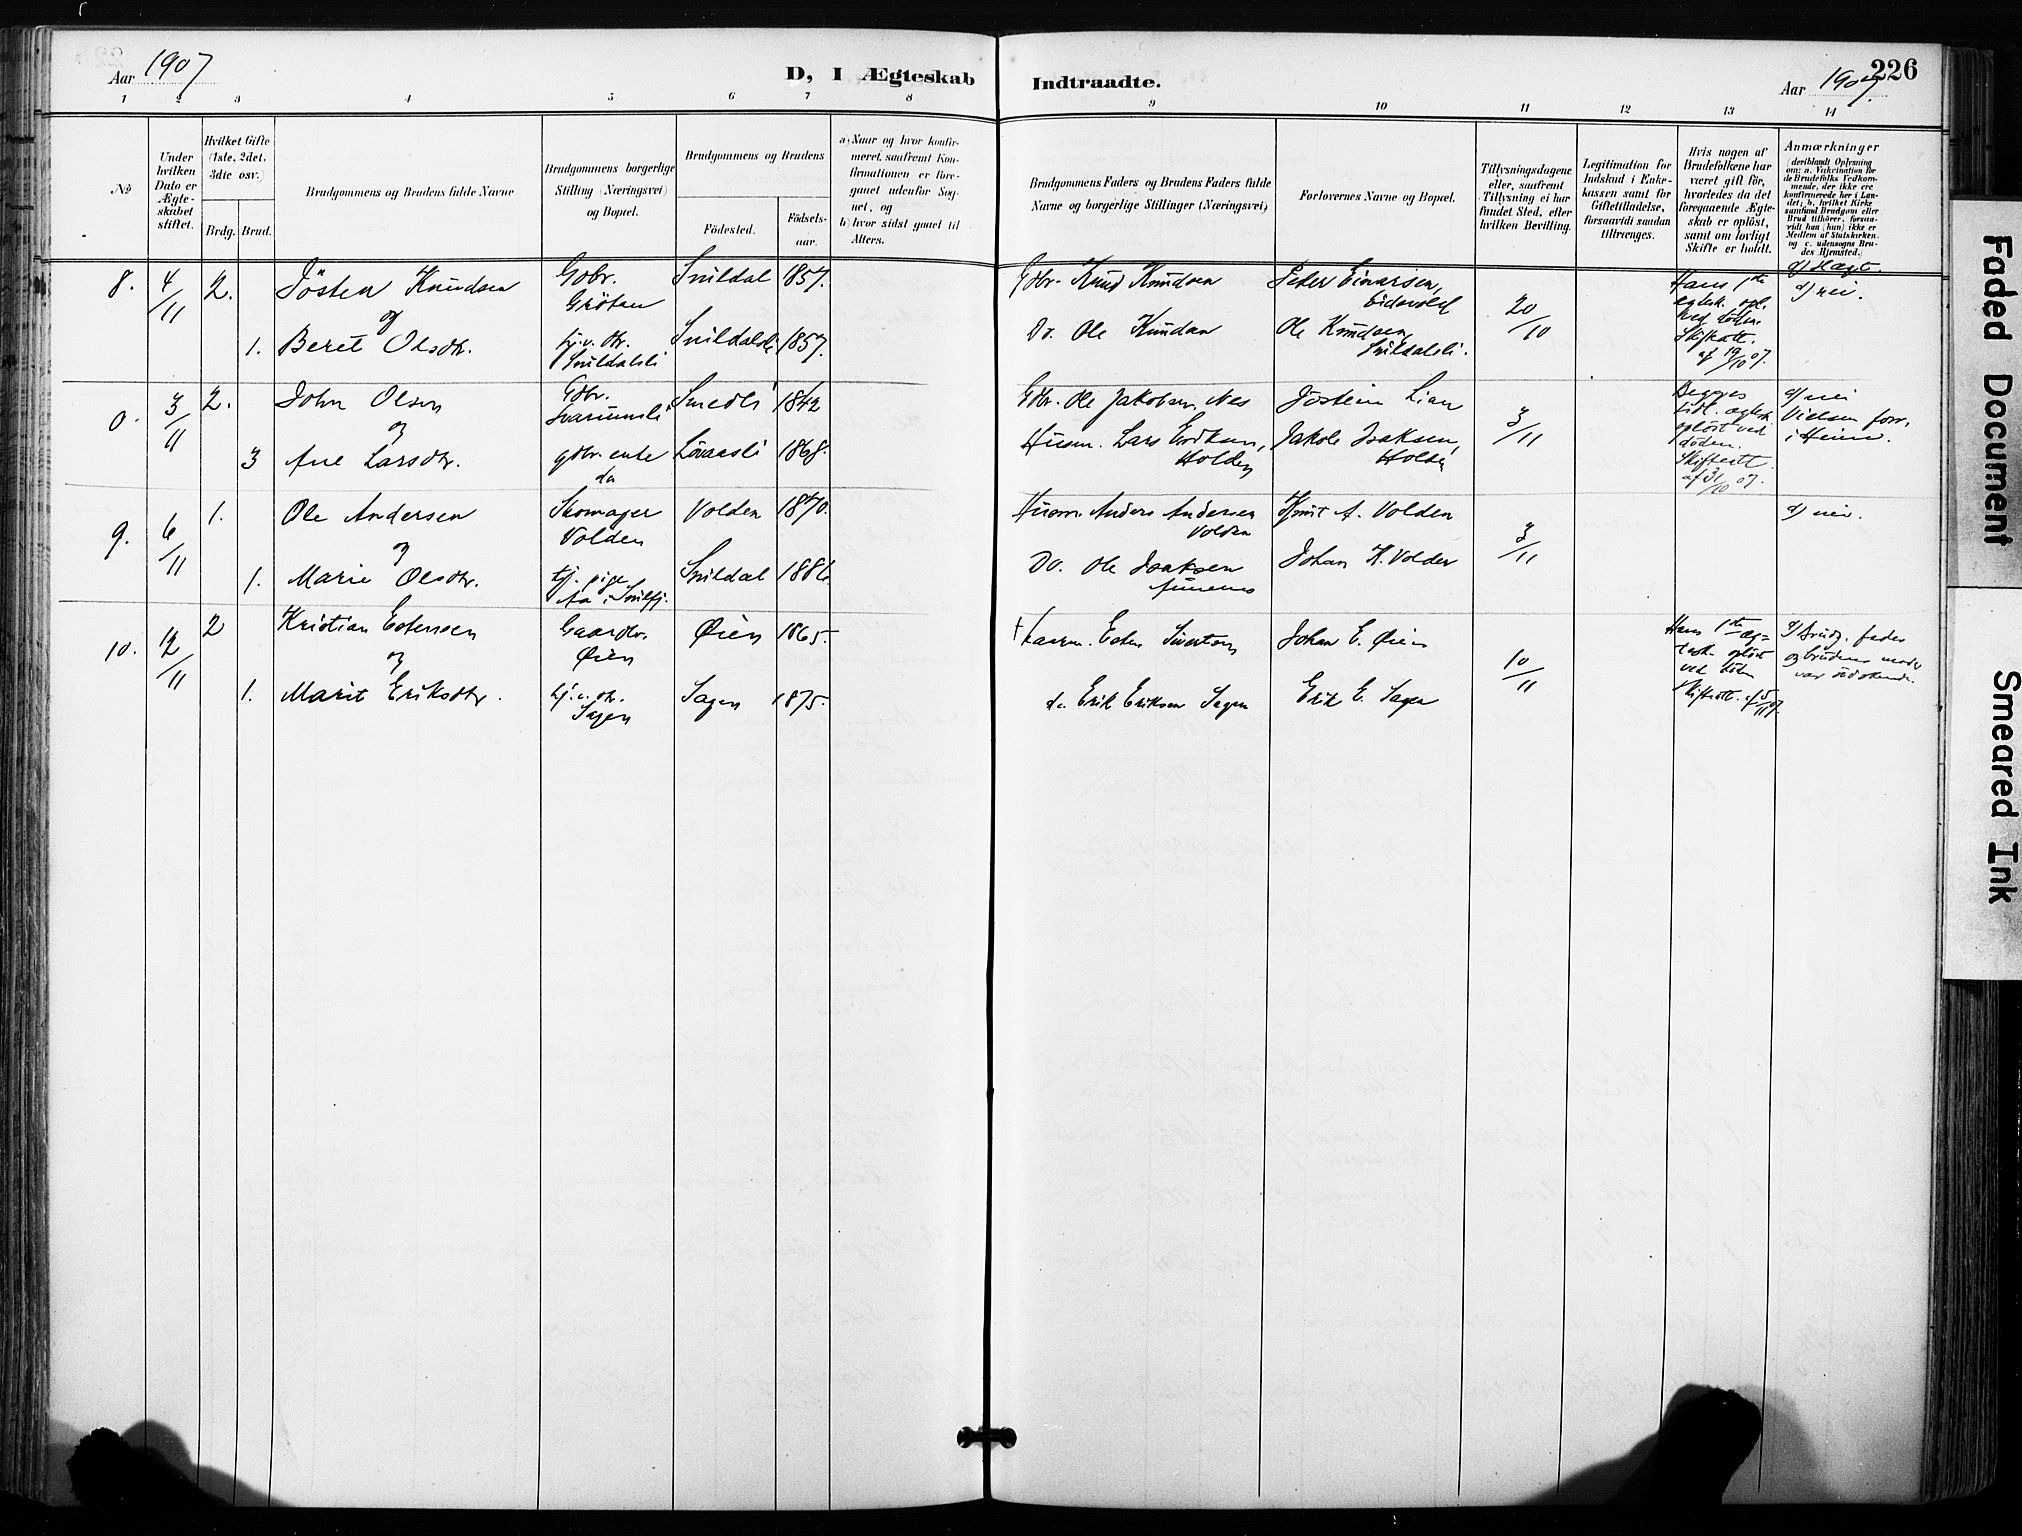 Aar 1907
D, I Ægteskab
Indtraadte.
Aar 1907.
226
1 2 3 4 5 6 7 8 9 10 11 12 13 14
No
Under hvilken Dato er Ægteskabet stiftet.
Hvilket Gifte (1ste, 2det, 3die osv.)
Brdg. Brud.
Brudgommens og Brudens fulde Navne
Brudgommens borgerlige Stilling (Næringsvei) og Bopæl.
Brudgommens og Brudens
Födested.
Födselsaar.
a) Naar og hvor konfirmeret, saafremt Konfirmationen er foregaaet udenfor Sognet, og
b) hvor sidst gaaet til Alters.
Brudgommens Faders og Brudens Faders fulde Navne og borgerlige Stillinger (Næringsvei)
Forlovernes Navne og Bopæl.
Tillysningsdagene eller, saafremt Tillysning ei har fundet Sted, efter hvilken Bevilling.
Legitimation for Indskud i Enkekassen samt for Giftetilladelse, forsaavidt saadan tiltrænges.
Hvis nogen af Brudefolkene har været gift før, hvorledes da det foregaaende Ægteskab er opløst, samt om lovligt Skifte er holdt.
Anmærkninger
(deriblandt Oplysning om: a. Vakcination for de Brudefolks Vedkommende, der ikke ere konfirmerede her i Landet; b. hvilket Kirkesamfund Brudgom eller Brud tilhörer, forsaavidt han (hun) ikke er Medlem af Statskirken, og c. udensogns Brudes Hjemsted.)
8. 4/11 2. Jösten Knudsen Gbr. Grötan Snildal 1857. Gbr. Knud Knudsen Peder Einarsen, 20/10 Hans 1ste egtesk. opl. ved döden. Skifteatt. af 19/10 07. nei.
og
1. Beret Olsdtr. Snildalsli Snildalsli 1857. Do. Ole Knudsen Ole Knudsen Snildalsli.
0. 3/11 2. John Olsen Gbr. Smedli 1842 Gbr. Ole Jakobsen Nes Jostein Lian 3/11 Begges tidl. egtesk. oplöst ved döden. Skifteatt. af 31/10 07. nei Vielsen forr. i Heim.
og
3 Ane Larsdtr. gbr. enke da Lövaasli 1868. Husm. Lars Holden Jakob Isaksen, Holden
9. 6/11 1. Ole Andersen Skomager Volden Volden 1870. Husm. Anders Andersen Volden A. Volden 3/11 nei.
og
1. Marie Olsdtr. tj. pige Aa i Snilfj. Snildal 1886 Do. Ole Isaksen Johan K. Volden
10. 12/11 2 Kristian Estensen Gaardbr. Øien Øien 1865. Esten Sivertsen Johan E. Øien 10/11 Hans 1ste egtesk. oplöst ved döden Skifteatt. af 5/11 07. Brudg. fader og brudens moder var södskende.
og
1. Marit Eriksdtr. Sagen Sagen 1875. do. Erik Eriksen Sagen Erik E. Sagen
Faded Document
Smeared Ink